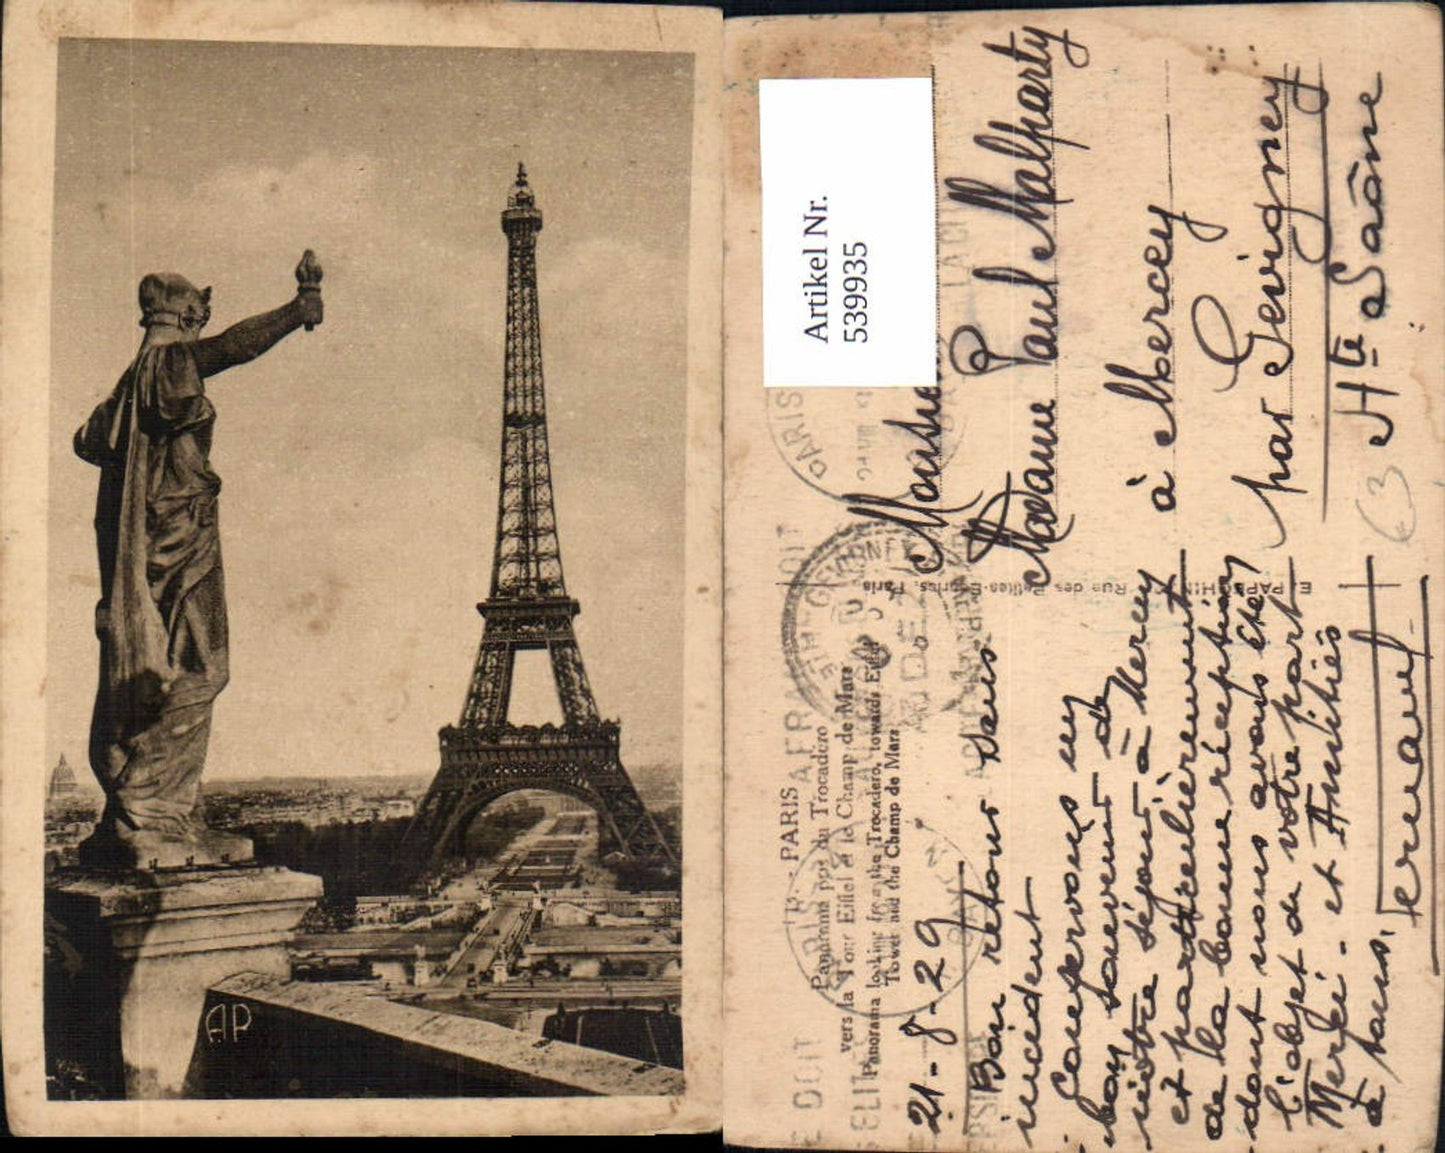 AP
Artikel Nr.
539935
PARIS
Panorama pris du Trocadéro
vers la Tour Eiffel et le Champ de Mars
Panorama looking from the Trocadero, towards Eiffel
Tower and the Champ de Mars
Rue des Petites-Écuries, Paris
21-8-29
Bon retour sans
incident
Conservons un
bon souvenir de
notre séjour à Mercey
et particulièrement
de la bonne réception
dont nous avons été
l'objet de votre part
Merci - et Amitiés
à tous.
Madame Paul Malparty
à Mercey
par Gevigney
Hte Saône
63